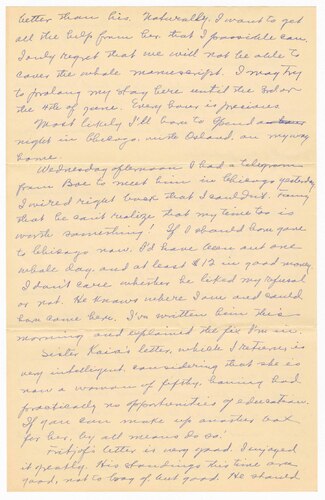 better than his. Naturally, I want to get
all the help from her that I possible can.
I only regret that we will not be able to
cover the whole manuscript. I may try
to prolong my stay here until the 3rd or
the 4th of June. Every hour is precious.
Most likely I'll have to spend a
night in Chicago, with Osland, on my way
home.
Wednesday afternoon I had a telegram
from Boe to meet him in Chicago yesterday.
I wired right back that I couldn't. Funny
that he can't realize that my time too is
worth something! If I should have gone
to Chicago now, I'd have been out one
whole day, and at least $12 in good money.
I don't care whether he liked my refusal
or not. He knows where I am and could
have come here. I've written him this
morning and explained the fix I'm in.
Sister Kaia's letter, which I return, is
very intelligent, considering that she is
now a woman of fifty, having had
practically no opportunities of education.
If you can make up another box
for her, by all means do so.
Fritjof's letter is very good. I enjoyed
it greatly. His standings this time are
good, not to say of but good. He should